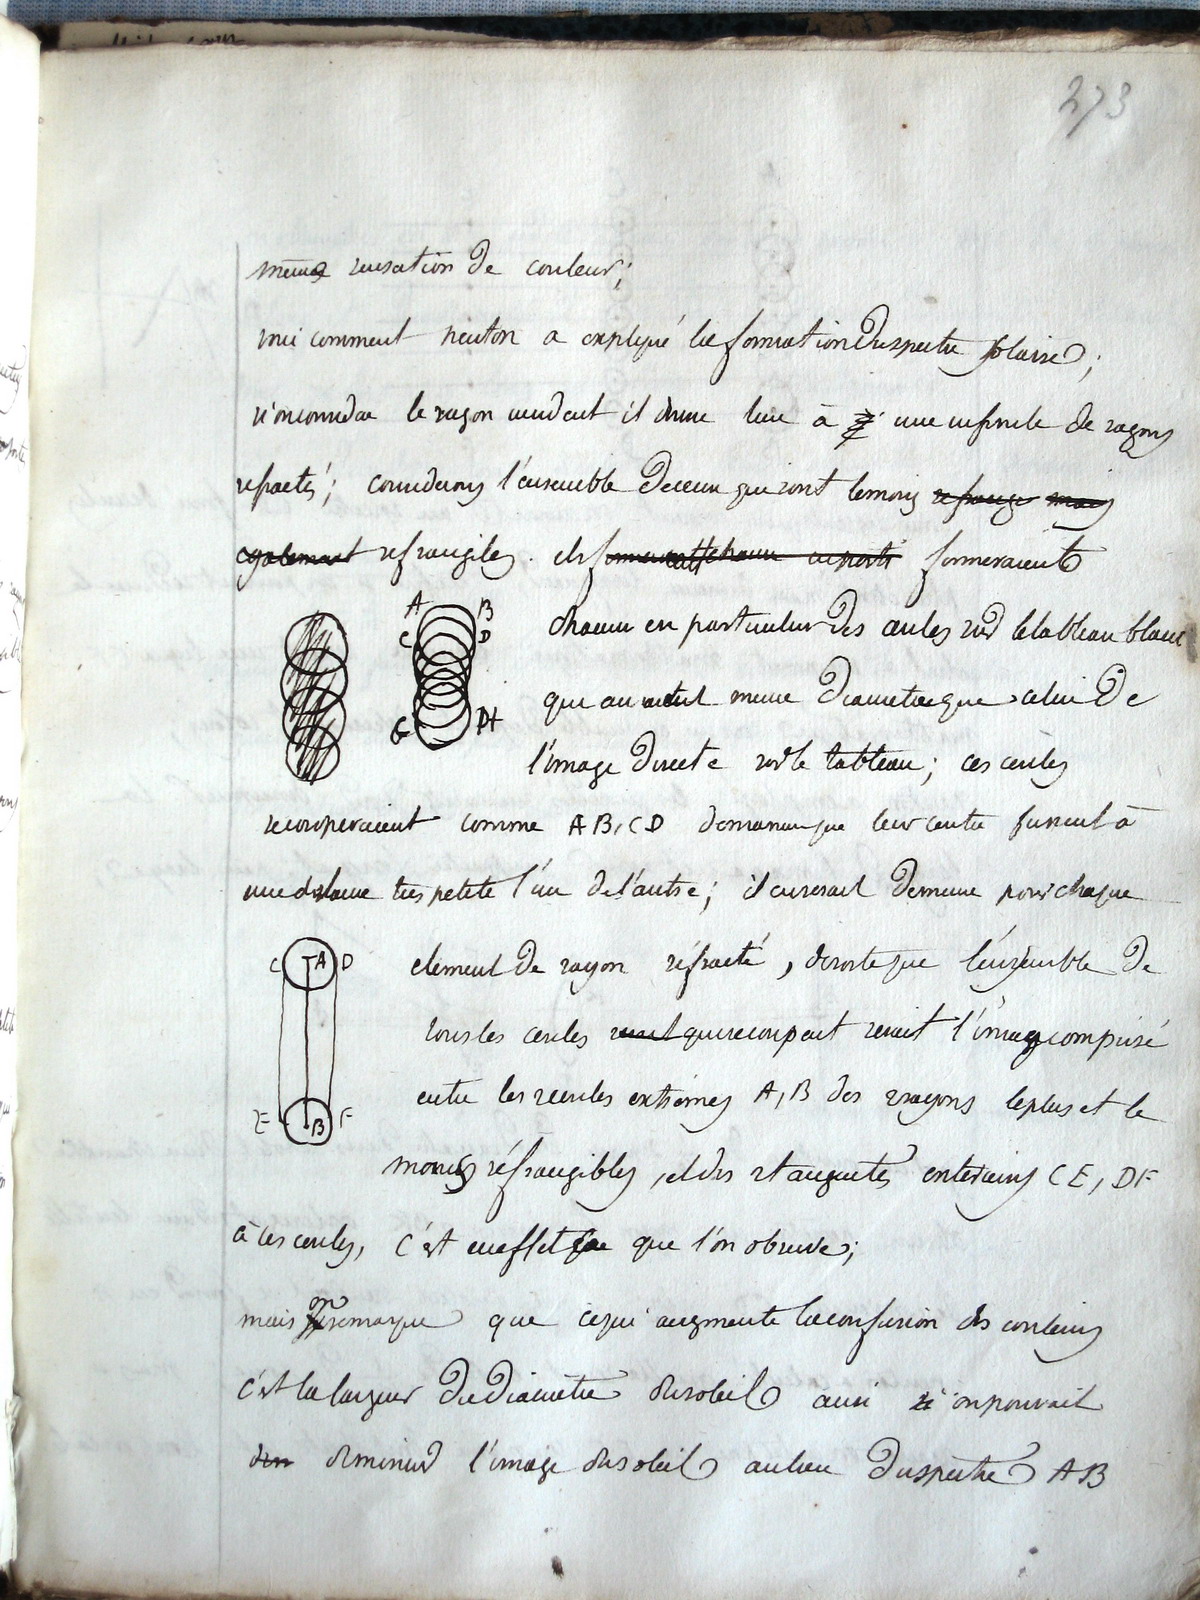 273
même sensation de couleur;
voici comment neuton a expliqué la formation du spectre solaire;
si on considere le rayon incident il donne lieu à une infinité de rayons
refractés; considerons l'ensemble de ceux qui sont le moins refrangi mais
egalement refrangibles. ils formeraient
A B
C D
G H
chacun en particulier des cercles sur le tableau blanc
qui auraient meme diametre que celui de
l'image directe sur le tableau; ces cercles
se couperaient comme AB, CD de maniere que leur centre furent à
une distance tres petite l'un de l'autre; il en serait de meme pour chaque
C A D
element de rayon réfracté, de sorte que l'ensemble de
tous les cercles qui se coupent serait l'image comprise
entre les cercles extrèmes A, B des rayons le plus et le
E B F
moins réfrangibles, et des tangentes exterieures CE, DF
à ces cercles, c'est en effet ce que l'on observe;
mais on remarque que ce qui augmente la confusion des couleurs
c'est la largeur du diametre du soleil ainsi si on pouvait
diminuer l'image du soleil au lieu du spectre AB